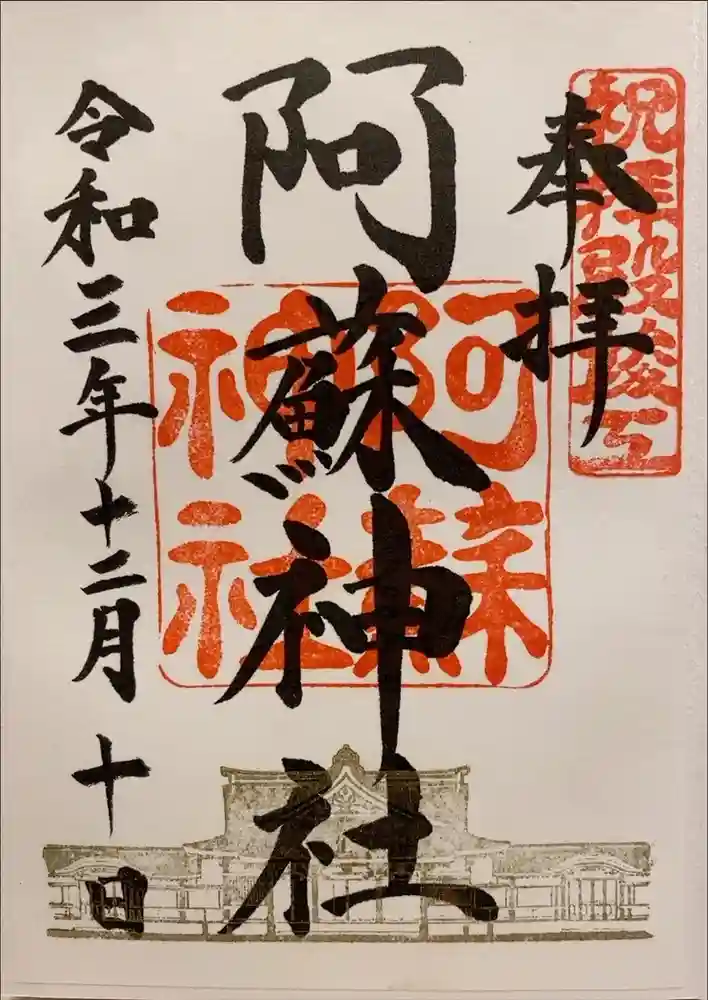 祝拝殿竣工
奉拝
阿蘇神社
阿蘇神社
令和三年十二月十日